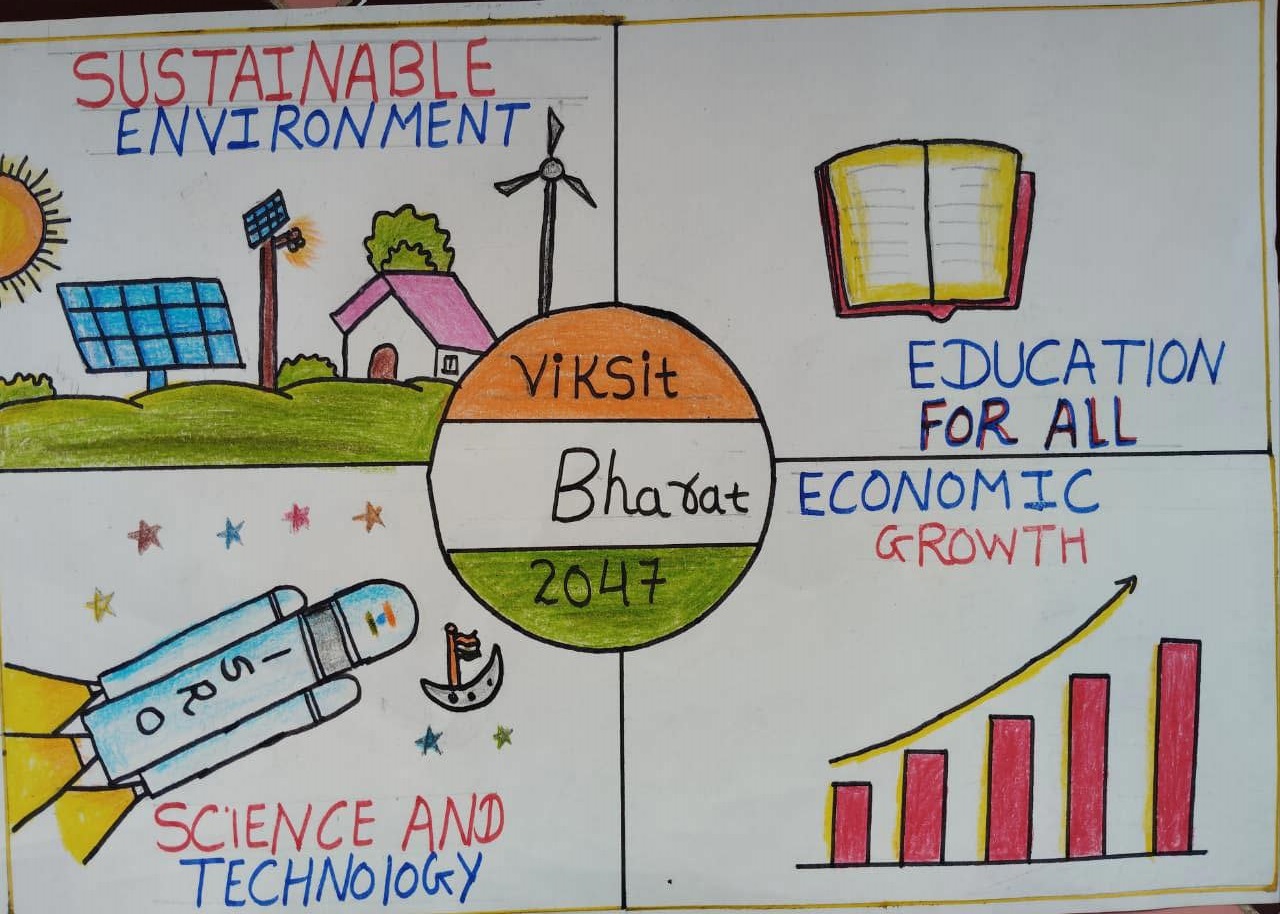 SUSTAINABLE
ENVIRONMENT
EDUCATION
FOR ALL
Viksit
Bharat
2047
ECONOMIC
GROWTH
ISRO
SCiENCE AND
TECHNOlOGY